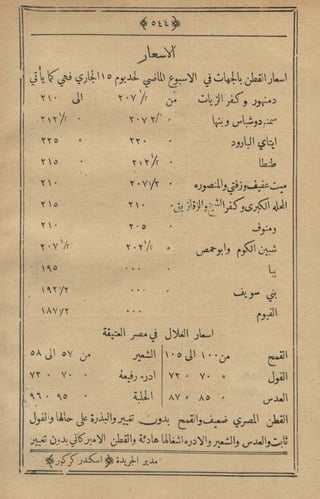 ﴿ ٥٤٤ ﴾
الاسعار
اسعار القطن بالجهات في الاسبوع الماضي لحد يوم ١٥ الجاري فهي كما يأتي
دمنهور وكفر الزيات من ٢٠٧ ١/٢ الى ٢١٠
سمنود وشباس وبنها " ٢٠٧ ١/٢ " ٢١٢ ١/٢
ايتاي البارود " ٢٢٠ " ٢٢٥
طنطا " ٢١٢ ١/٢ " ٢١٥
ميت عفيف وزفتي والمنصوره " ٢٠٧ ١/٢ " ٢١٠
المحله الكبرى وكفر الشيخ والزقازيق " ٢١٠ " ٢١٥
ومنوف " ٢٠٥ " ٢١٠
شبين الكوم وابو حمص " ٢٠٢ ١/٢ " ٢٠٧ ١/٢
ببا " ٠٠٠ " ١٩٥
بني سويف " ٠٠٠ " ١٩٢ ١/٢
الفيوم ٠٠٠ ١٨٧ ١/٢
اسعار الغلال في مصر العتيقة
القمح من ١٠٠ الى ١٠٥ الشعير من ٥٧ الى ٥٨
الفول " ٧٠ " ٧٢ ادره رفيعة " ٧٠ " ٧٢
العدس " ٨٥ " ٨٧ الحلبة " ٩٥ " ٩٦
القطن المصري ضعيف والقمح بدون تغيير والبذرة على حالها والفول
ثابت والعدس والشعير والادره اشغالها هادئة والقطن الاميركاني بدون تغيير
مدير الجريدة ﴿ اسكندر كركور ﴾